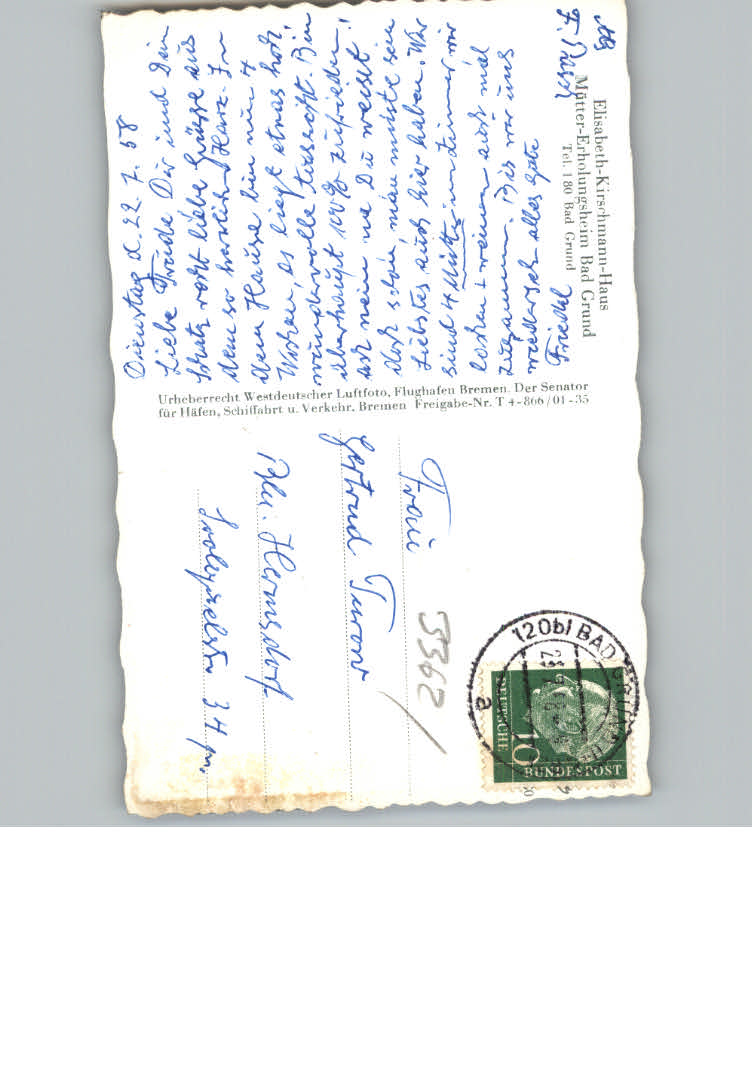 Elisabeth-Kirschmann-Haus
Mütter-Erholungsheim Bad Grund
Tel. 180 Bad Grund
Dienstag d. 22. 7. 58
Liebe Trude Dir und Dein
Schatz recht liebe Grüße aus
dem so herrlichen Harz. In
dem Hause bin nun 4
Wochen, es liegt etwas hoch,
wundervolle Aussicht. Bin
überhaupt 100% zufrieden!
Ach nein na Du weißt
doch schon, man möchte sein
Liebstes auch hier haben. Wir
sind 4 Muttis im Zimmer wir
lachen + weinen auch mal
zusammen. Bis wir uns
wiedersehn alles gute
Friedel
Urheberrecht Westdeutscher Luftfoto, Flughafen Bremen. Der Senator
für Häfen, Schiffahrt u. Verkehr, Bremen Freigabe-Nr. T 4-866/01-35
Frau
Gertrud
Bln. Hermsdorf
34
3362
120b BAD GRUND
a
DEUTSCHE
BUNDESPOST
10